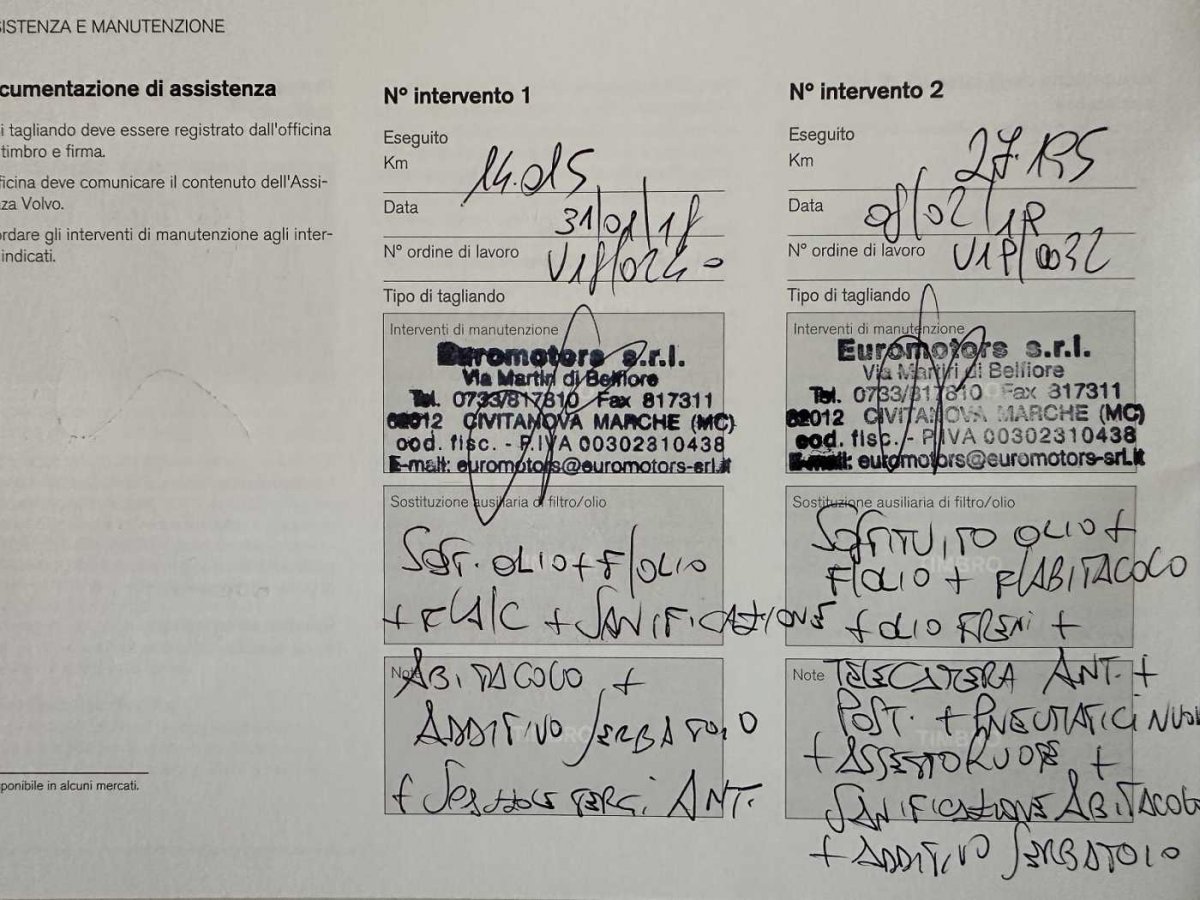 SISTENZA E MANUTENZIONE
cumentazione di assistenza
i tagliando deve essere registrato dall'officina
timbro e firma.
ficina deve comunicare il contenuto dell'Assi-
za Volvo.
ordare gli interventi di manutenzione agli inter-
indicati.
sponibile in alcuni mercati.
N° intervento 1
Eseguito
Km 14.015
Data 31/01/18
N° ordine di lavoro V18/0240
Tipo di tagliando
Interventi di manutenzione
Euromotors s.r.l.
Via Martiri di Belfiore
Tel. 0733/817810 Fax 817311
62012 CIVITANOVA MARCHE (MC)
cod. fisc. - P.IVA 00302310438
E-mail: euromotors@euromotors-srl.it
Sostituzione ausiliaria di filtro/olio
SOST. OLIO + F/OLIO
+ F/A/C + SANIFICAZIONE
Note ABITACOLO +
ADDITIVO SERBATOIO
+ TERGI ANT.
N° intervento 2
Eseguito
Km 27.195
Data 08/02/19
N° ordine di lavoro V19/0032
Tipo di tagliando
Interventi di manutenzione
Euromotors s.r.l.
Via Martiri di Belfiore
Tel. 0733/817810 Fax 817311
62012 CIVITANOVA MARCHE (MC)
cod. fisc. - P.IVA 00302310438
E-mail: euromotors@euromotors-srl.it
Sostituzione ausiliaria di filtro/olio
SOSTITUITO OLIO +
F/OLIO + F/ABITACOLO
+ OLIO FRENI +
Note TELECAMERA ANT. +
POST. + PNEUMATICI NUOV
+ ASSETTO RUOTE +
SANIFICAZIONE ABITACOLO
+ ADDITIVO SERBATOIO